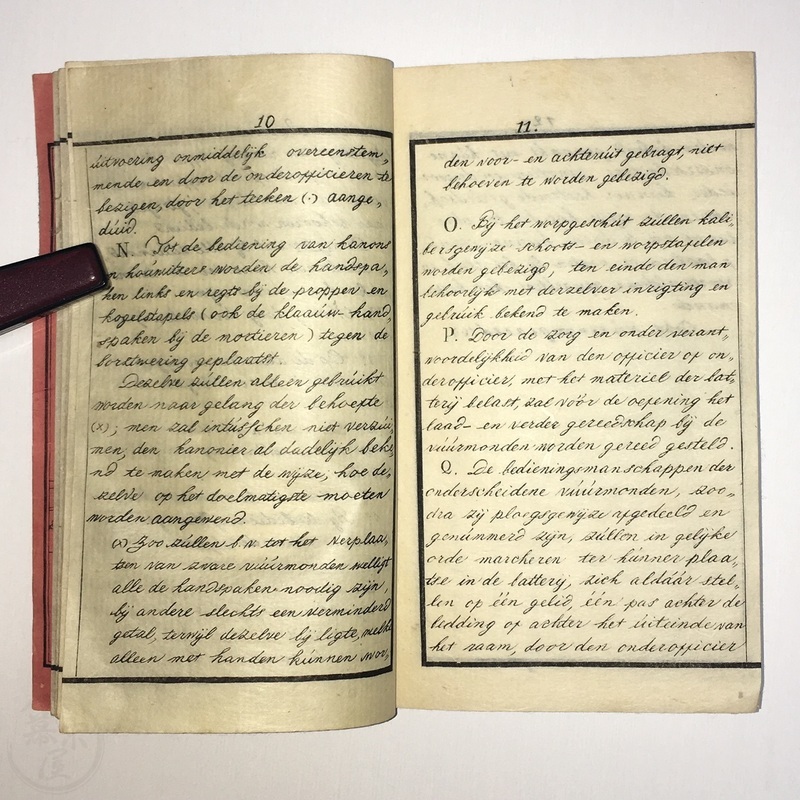 10
uitvoering onmiddelijk overeenstem„
mende en door de onderofficieren te
bezigen, door het teeken (·) aange„
dúid.
N. Tot de bediening van kanons
en hoúwitzers worden de handspa„
ken links en regts bij de propper en
kogelstapels (ook de klaaúw-hand„
spaken bij de mortieren) tegen de
borstwering geplaatst.
Dezelve zúllen alleen gebrúikt
worden naar gelang der behoefte
(x); men zal intússchen niet verzúi„
men, den kanonier al dadelijk beke„
nd te maken met de wijze, hoe de„
zelve op het doelmatigste moeten
worden aangewend.
(x) Zoo zúllen b.v. tot het verplaa„
tsen van zware vúúrmonden welligt
alle de handspaken noodig zijn,
bij andere slechts een verminderd
getal, terwijl dezelve bij ligte, welke
alleen met handen kúnnen wor„
11.
den voor- en achterúit gebragt, niet
behoeven te worden gebezigd.
O. Bij het worpgeschút zúllen kali„
bersgewijze schoots- en worpstapelen
worden gebezigd, ten einde den man
behoorlijk met derzelver inrigting en
gebruik bekend te maken.
P. Door de zorg en onder verant„
woordelijkheid van den officier of on„
derofficier, met het materiel der bat„
terij belast, zal vóór de oefening het
laad- en verder gereedschap bij de
vúúrmonden worden gereed gesteld.
Q. De bedieningsmanschappen der
onderscheidene vúúrmonden, zoo„
dra zij ploegsgewijze afgedeeld en
genúmmerd zijn, zúllen in gelijke
orde marcheren ter húnner plaa„
tse in de batterij, zich aldáár stel„
len op één gelid, één pas achter de
bedding of achter het úiteinde van
het raam, door den onderofficier